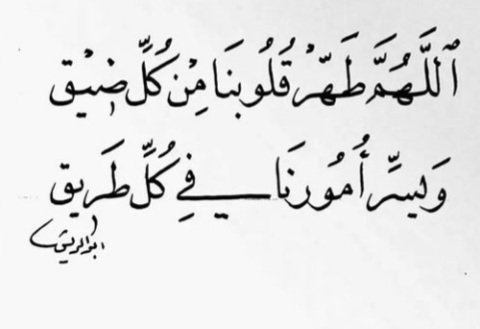 ٱللَّهُمَّ طَهِّرْ قُلُوبَنَا مِنْ كُلِّ ضِيْقٍ
وَيَسِّرْ أُمُورَنَا فِي كُلِّ طَرِيقٍ